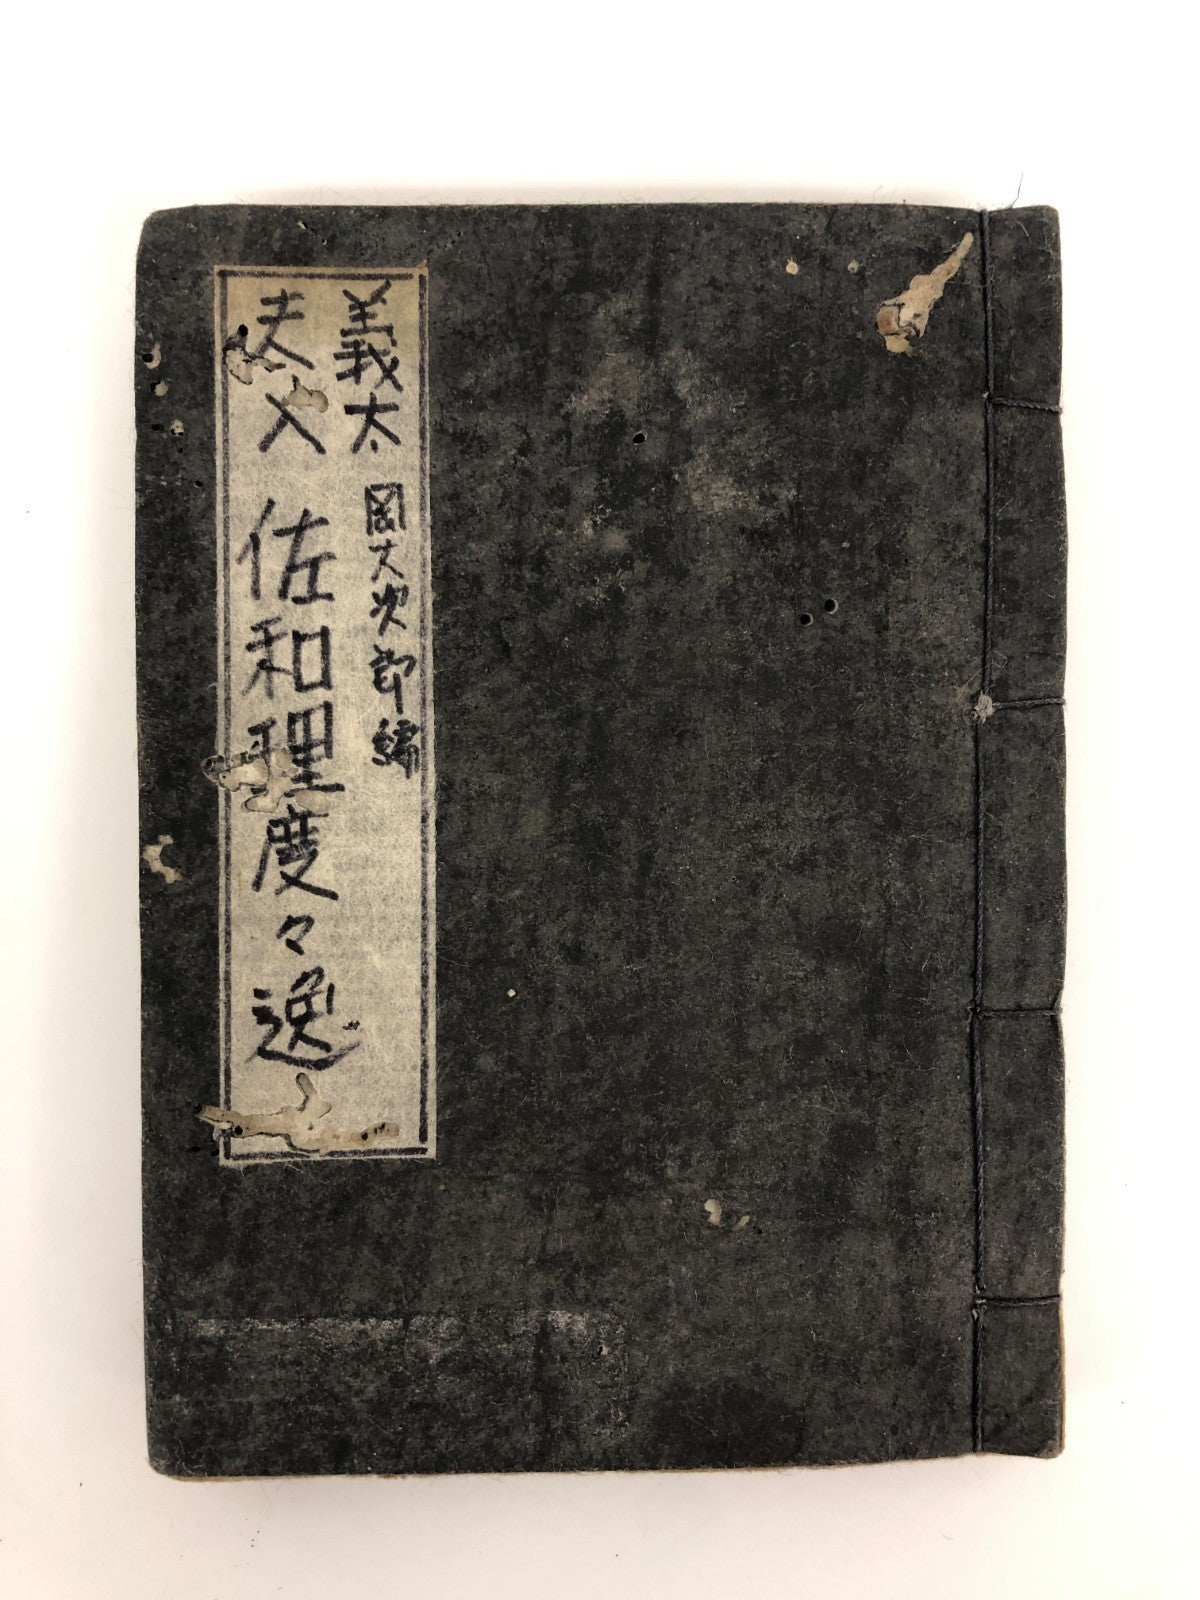 義太
夫入 佐和理度々逸
岡大次郎編